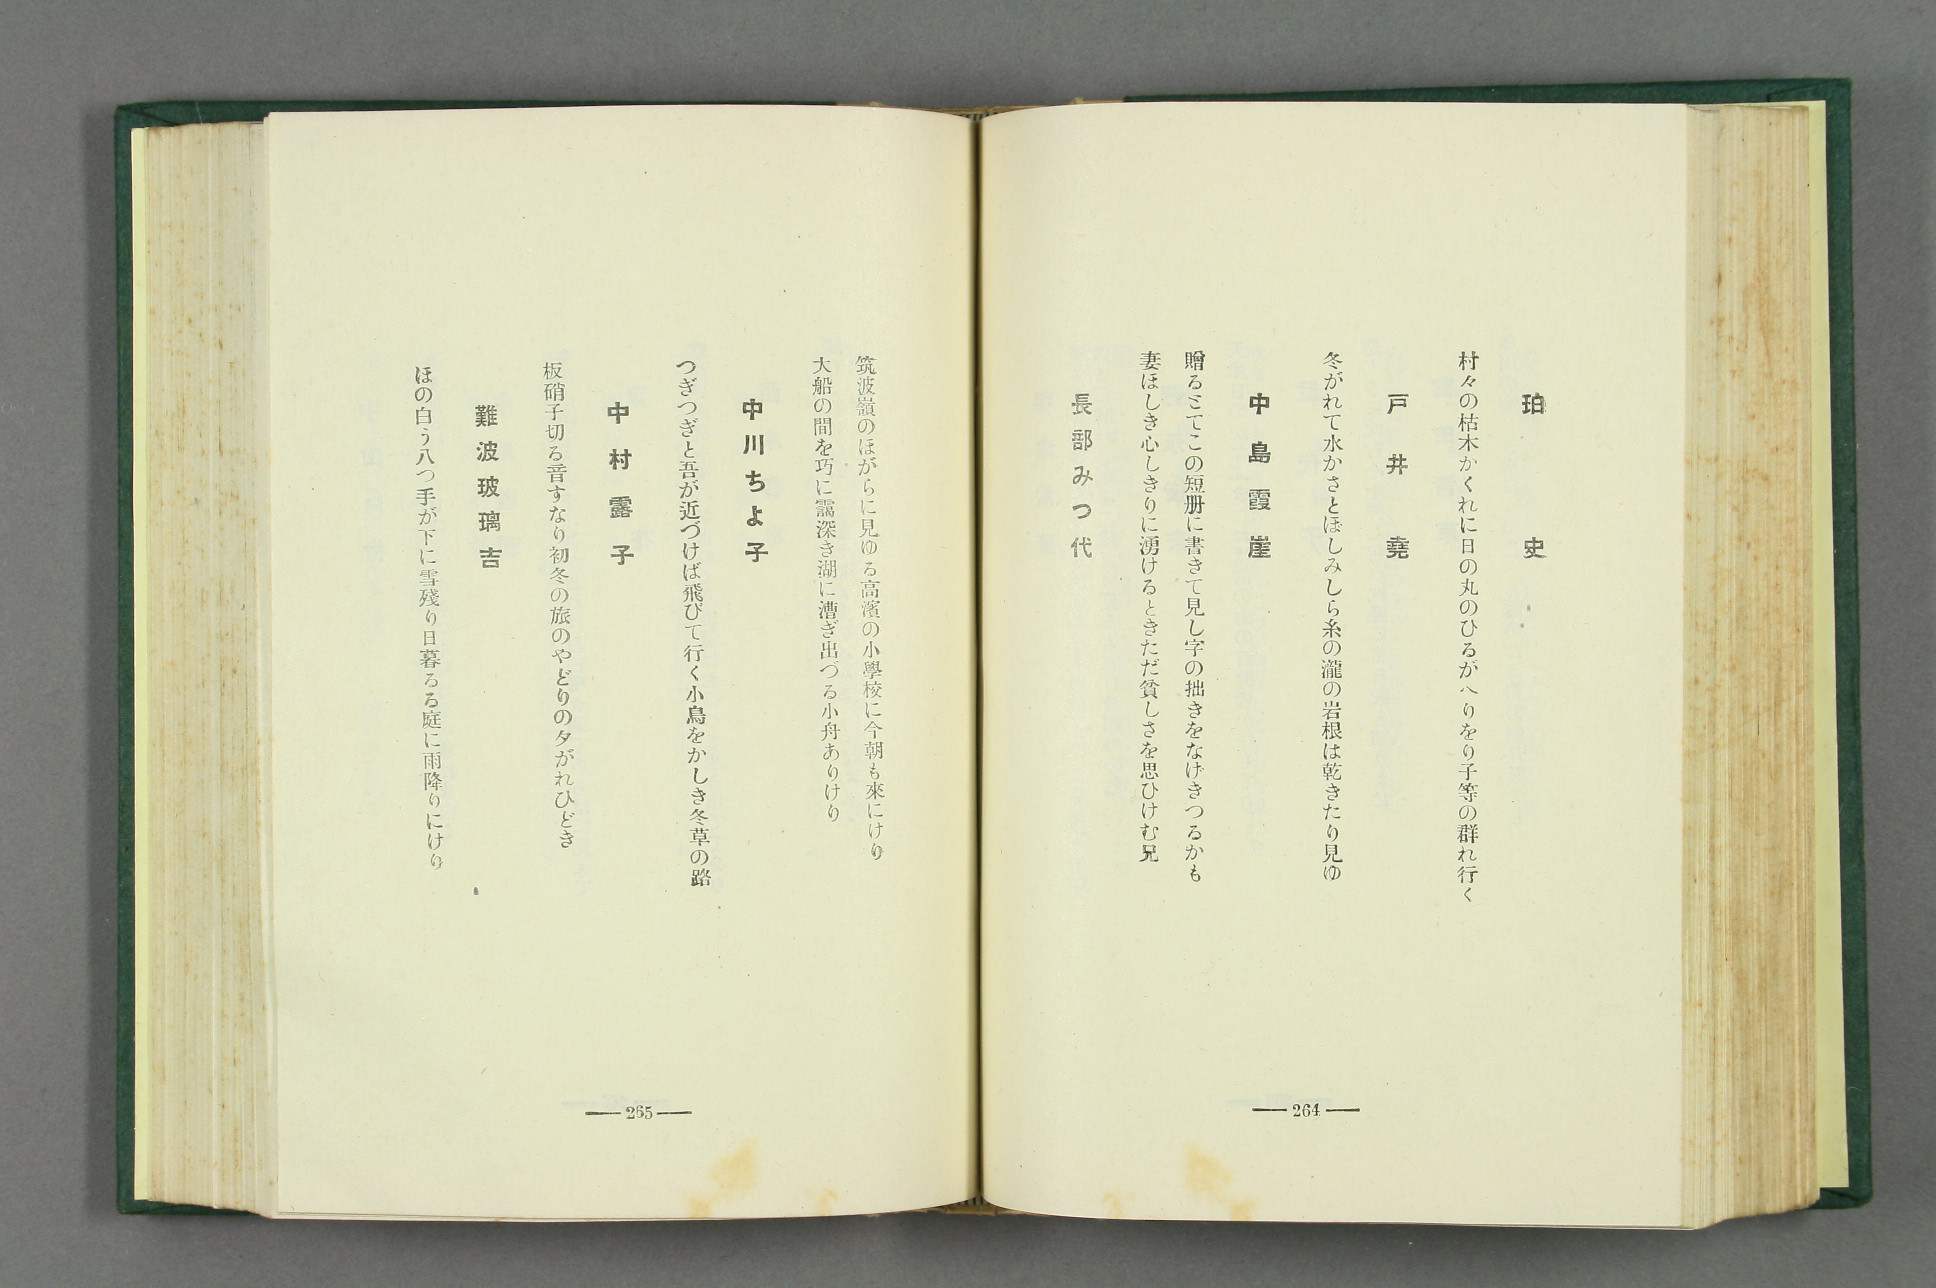 珀史
村々の枯木かくれに日の丸のひるがへりをり子等の群れ行く
戸井堯
冬がれて水かさとぼしみしら糸の瀧の岩根は乾きたり見ゆ
中島霞崖
贈るとてこの短册に書きて見し字の拙きをなげきつるかも
妻ほしき心しきりに湧けるときただ貧しさを思ひけむ兄
長部みつ代
―264―
筑波嶺のほがらに見ゆる高濱の小學校に今朝も來にけり
大船の間を巧に靄深き湖に漕ぎ出づる小舟ありけり
中川ちよ子
つぎつぎと吾が近づけば飛びて行く小鳥をかしき冬草の路
中村露子
板硝子切る音すなり初冬の旅のやどりの夕がれひどき
難波玻璃吉
ほの白う八つ手が下に雪殘り日暮るる庭に雨降りにけり
―265―